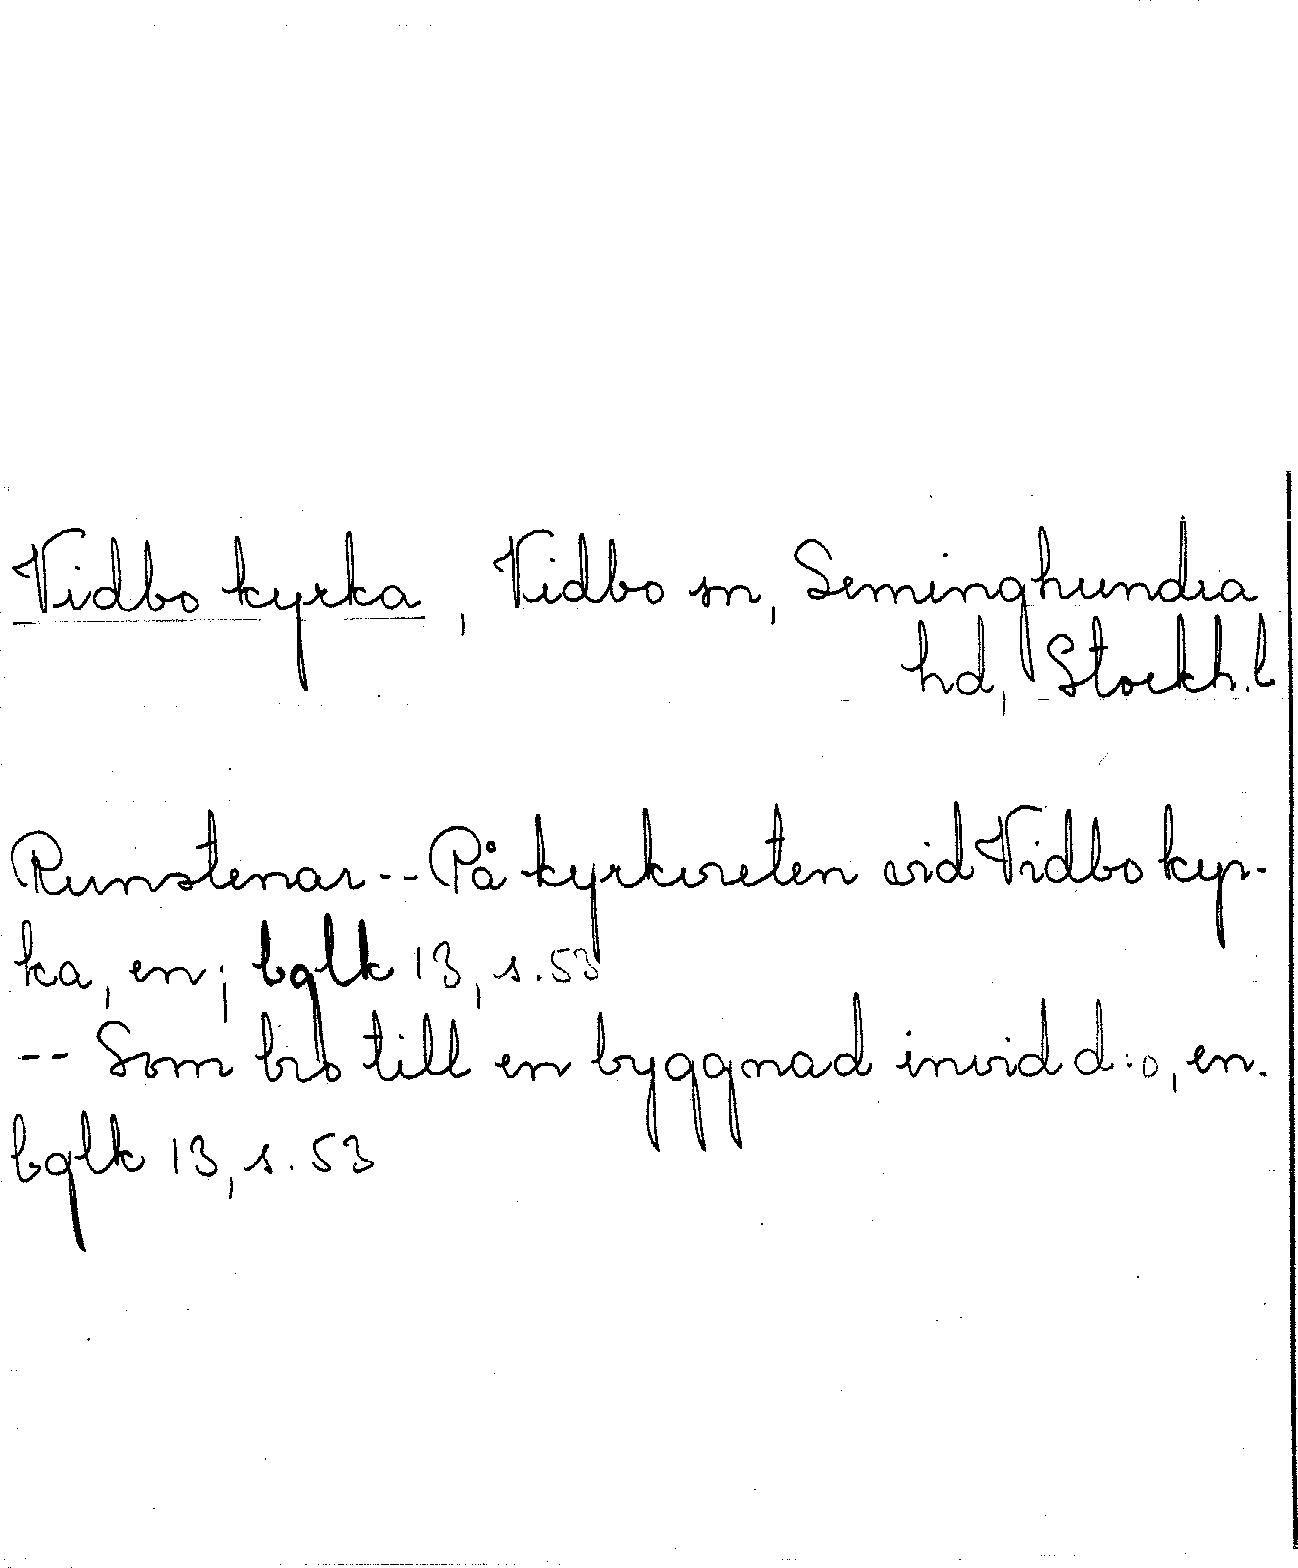 Vidbo kyrka, Vidbo sn, Seminghundra
hd, Stockh. l
Runstenar -- På kyrkvreten vid Vidbo kyr-
ka, en; bglk 13, s. 53
-- Som bro till en byggnad invid d:o, en.
bglk 13, s. 53